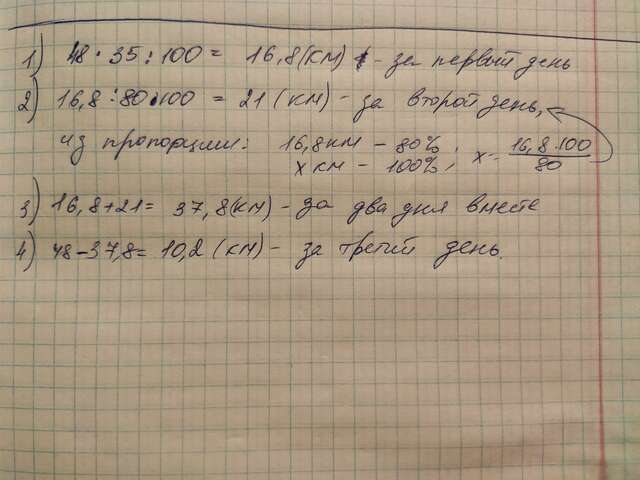 1) 48 · 35 : 100 = 16,8 (км) - за первый день
2) 16,8 : 80 · 100 = 21 (км) - за второй день,
из пропорции: 16,8 км - 80% ; x = 16,8 · 100 / 80
x км - 100% ;
3) 16,8 + 21 = 37,8 (км) - за два дня вместе
4) 48 - 37,8 = 10,2 (км) - за третий день.